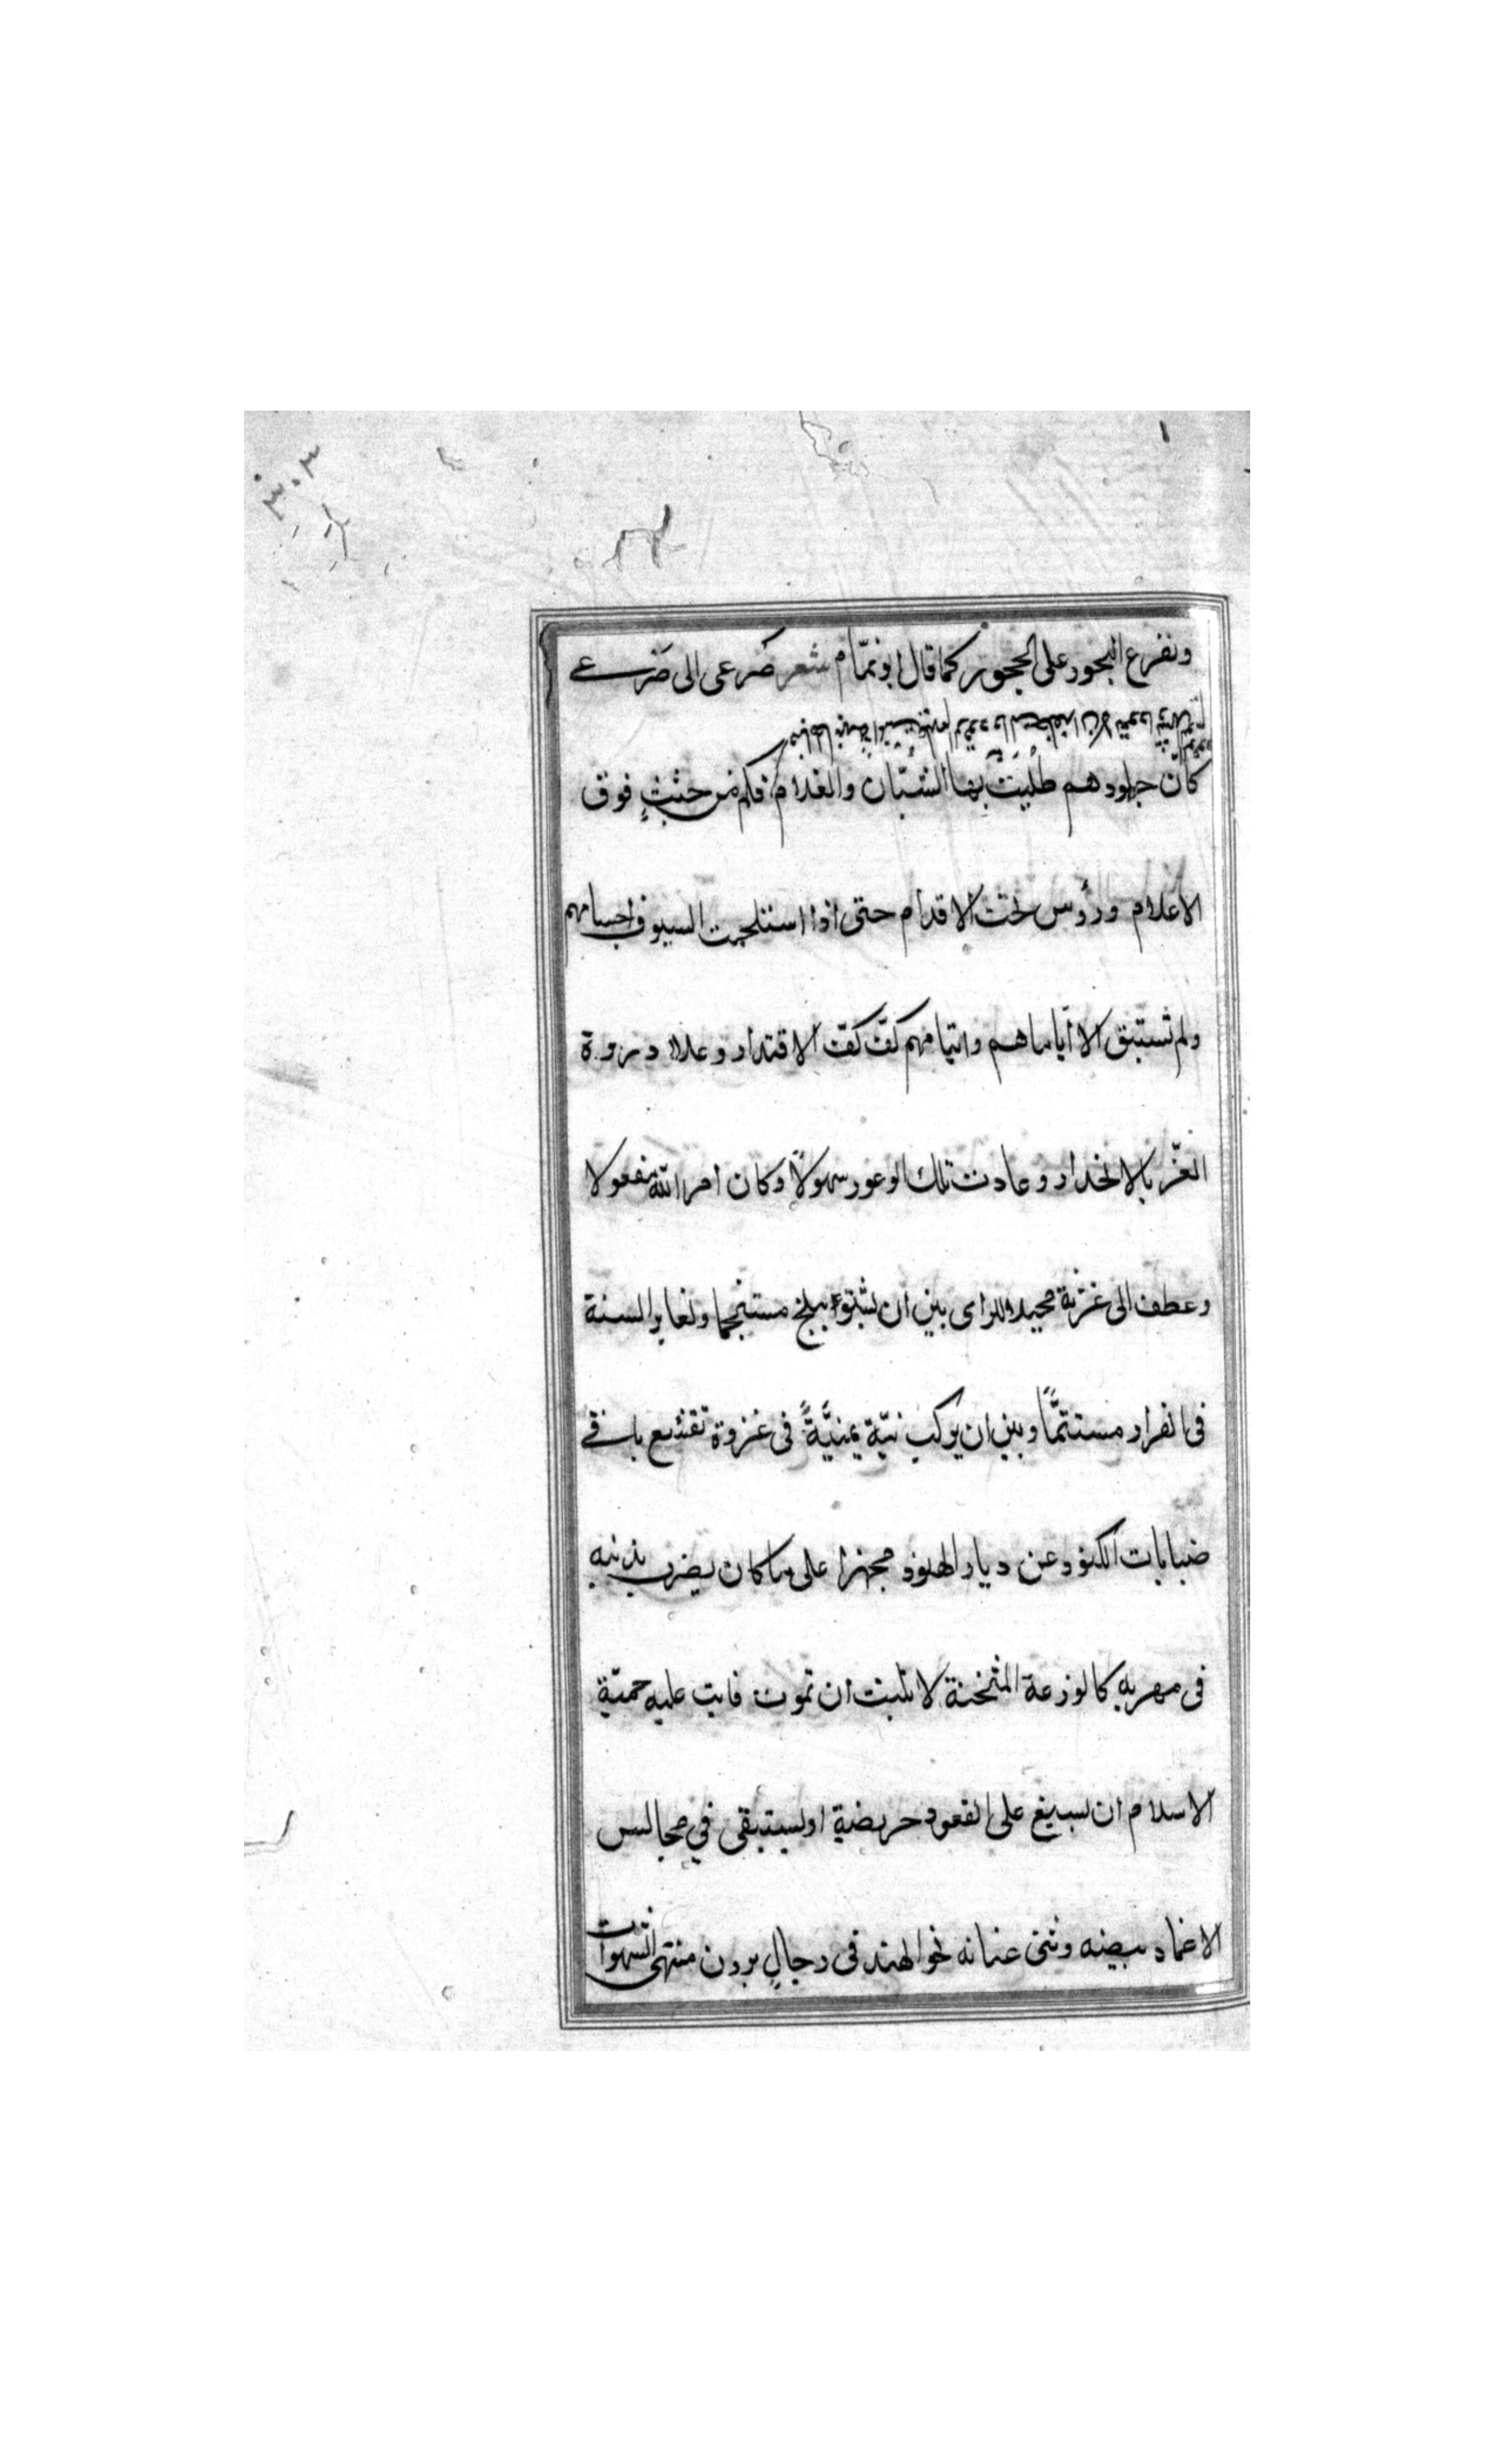 ٣٠٣
وتفرع البحور على الججور كما قال ابو تمّام شعر صَرعى الى صَرعى
كانّ جلودهم طُليت بها الشبّان والغلام فكم من جثثٍ فوق
الاعلام ورؤس تحت الاقدام حتى اذا استلحمت السيوف اجسامهم
ولم تستبق الا اياماهم وايتامهم كفّ كفّ الاقتدار وعلا ذروة
العزّ بالانحدار وعادت تلك الوعور سهولاً وكان امر الله مفعولا
وعطف الى غزنة مجيد الراى بين ان يشتو ببلخ مستجما ولغابر السنة
فى القرار مستتمًّا وبين ان يركب نيّة يمنيَّةً فى غزوة تقشع باقى
ضبابات الكنود عن ديار الهنود مجهزا على ما كان يضرب بذنبه
فى مهربه كالوزغة المثخنة لا تلبث ان تموت فابت عليه حميّة
الاسلام ان يسيغ على القعود حريضة او يستبقى فى مجالس
الاغماد بيضه وثنى عنانه نحو الهند فى رجالٍ يردن منتهى الشهوات